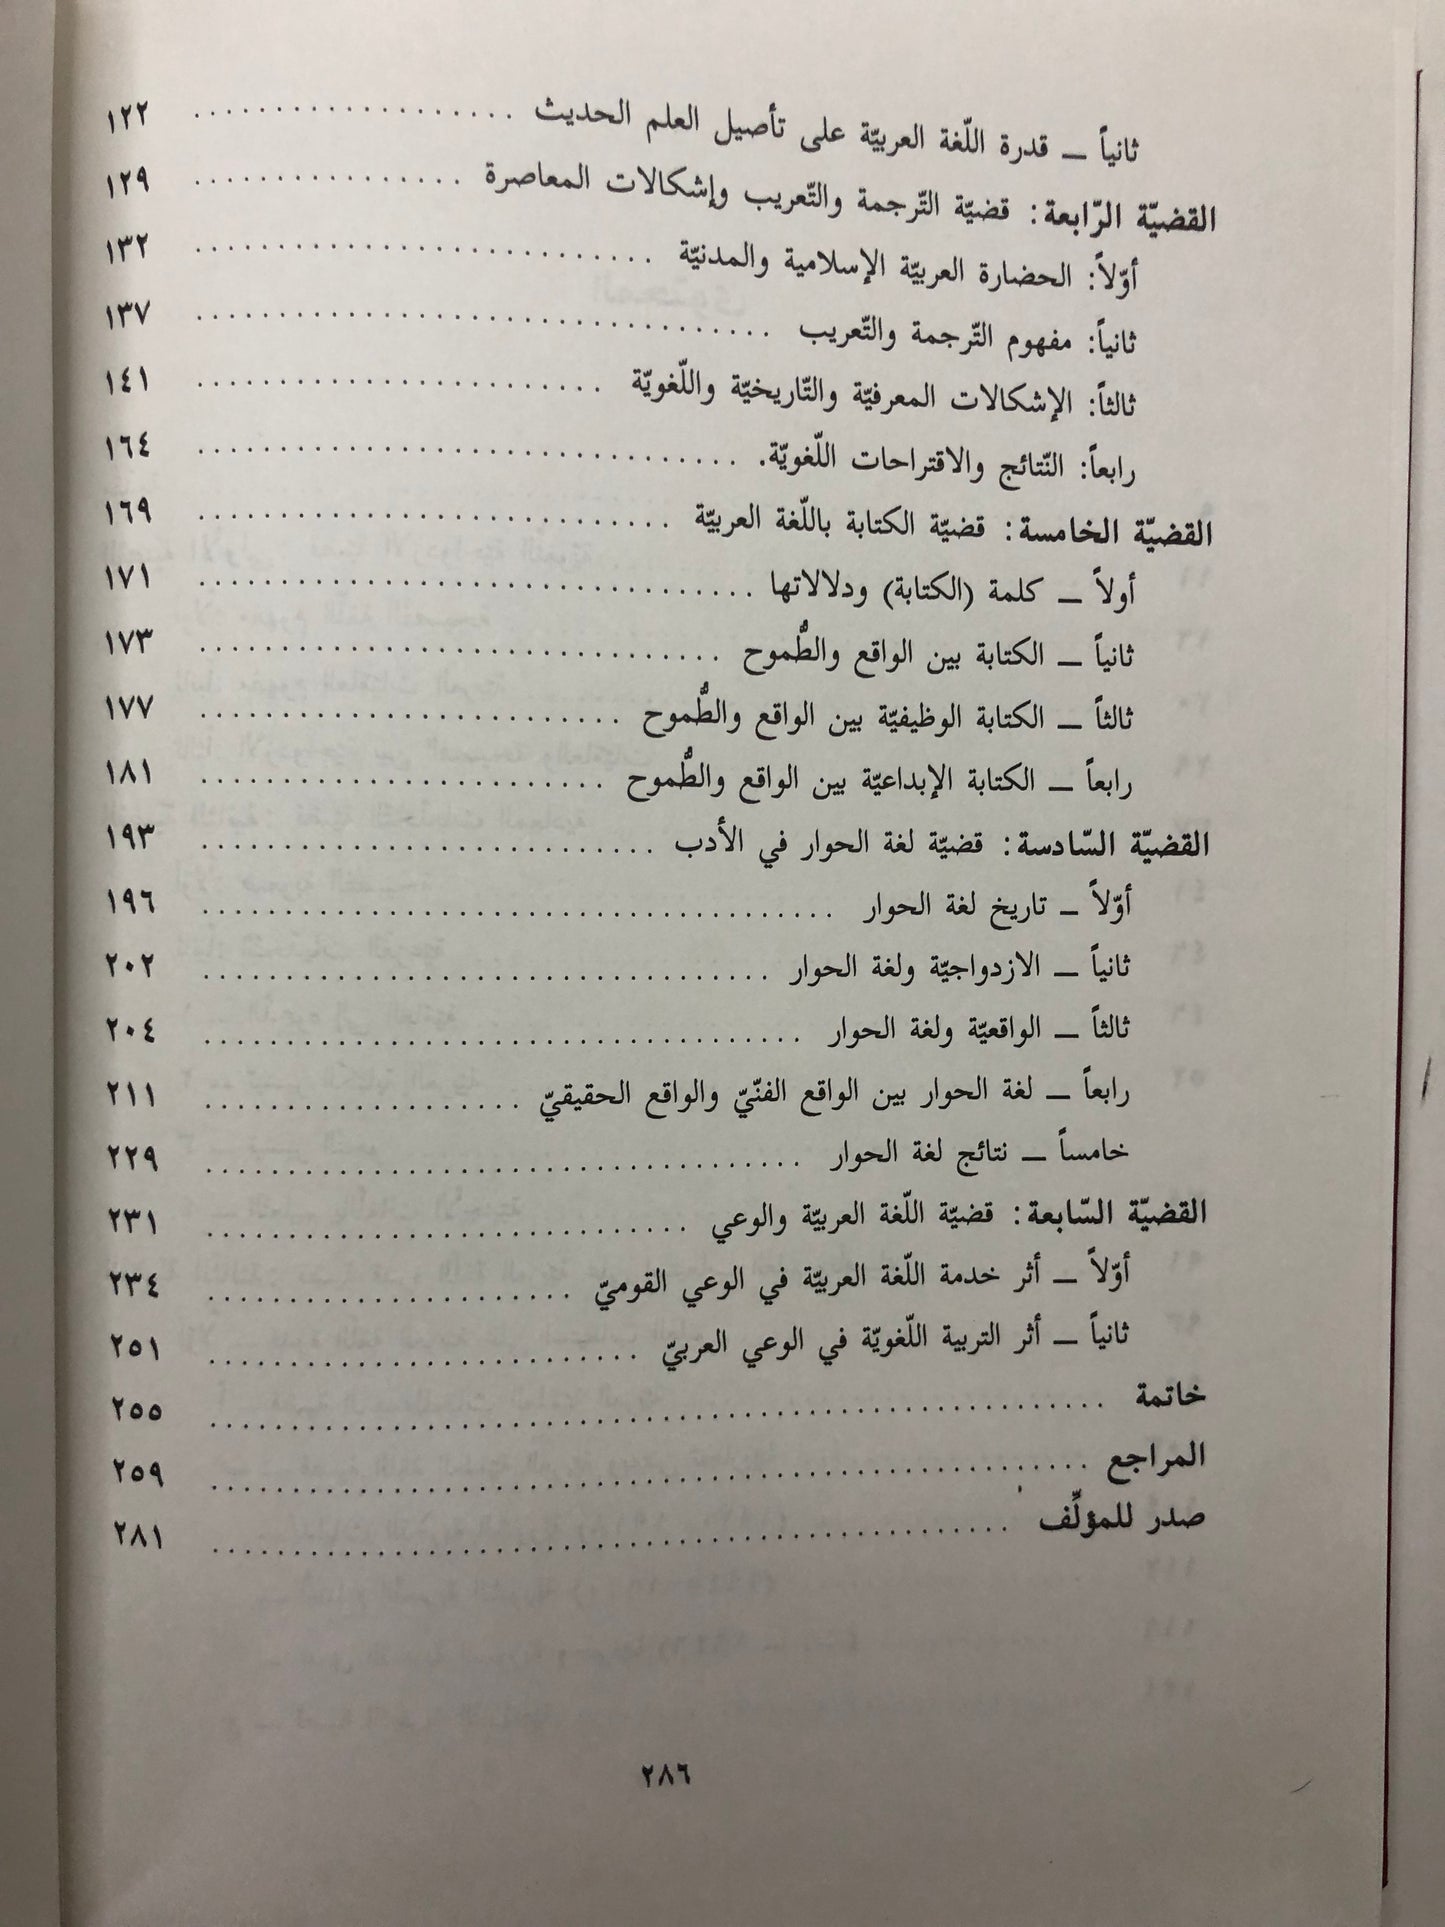 ثانياً ــ قدرة اللّغة العربيّة على تأصيل العلم الحديث .................... ١٢٢
القضيّة الرّابعة: قضيّة التّرجمة والتّعريب وإشكالات المعاصرة ................. ١٢٩
أوّلاً: الحضارة العربيّة الإسلامية والمدنيّة ............................ ١٣٢
ثانياً: مفهوم التّرجمة والتّعريب ................................... ١٣٧
ثالثاً: الإشكالات المعرفيّة والتّاريخيّة واللّغويّة ......................... ١٤١
رابعاً: النّتائج والاقتراحات اللّغويّة. ................................. ١٦٤
القضيّة الخامسة: قضيّة الكتابة باللّغة العربيّة ............................. ١٦٩
أولاً ــ كلمة (الكتابة) ودلالاتها .................................. ١٧١
ثانياً ــ الكتابة بين الواقع والطُّموح ................................ ١٧٣
ثالثاً ــ الكتابة الوظيفيّة بين الواقع والطُّموح .......................... ١٧٧
رابعاً ــ الكتابة الإبداعيّة بين الواقع والطُّموح ......................... ١٨١
القضيّة السّادسة: قضيّة لغة الحوار في الأدب ............................ ١٩٣
أوّلاً ــ تاريخ لغة الحوار ....................................... ١٩٦
ثانياً ــ الازدواجيّة ولغة الحوار ................................... ٢٠٢
ثالثاً ــ الواقعيّة ولغة الحوار ..................................... ٢٠٤
رابعاً ــ لغة الحوار بين الواقع الفنّيّ والواقع الحقيقيّ .................... ٢١١
خامساً ــ نتائج لغة الحوار ..................................... ٢٢٩
القضيّة السّابعة: قضيّة اللّغة العربيّة والوعي .............................. ٢٣١
أوّلاً ــ أثر خدمة اللّغة العربيّة في الوعي القوميّ ....................... ٢٣٤
ثانياً ــ أثر التربية اللّغويّة في الوعي العربيّ ........................... ٢٥١
خاتمة ....................................................... ٢٥٥
المراجع ...................................................... ٢٥٩
صدر للمؤلِّف ................................................. ٢٨١
٢٨٦